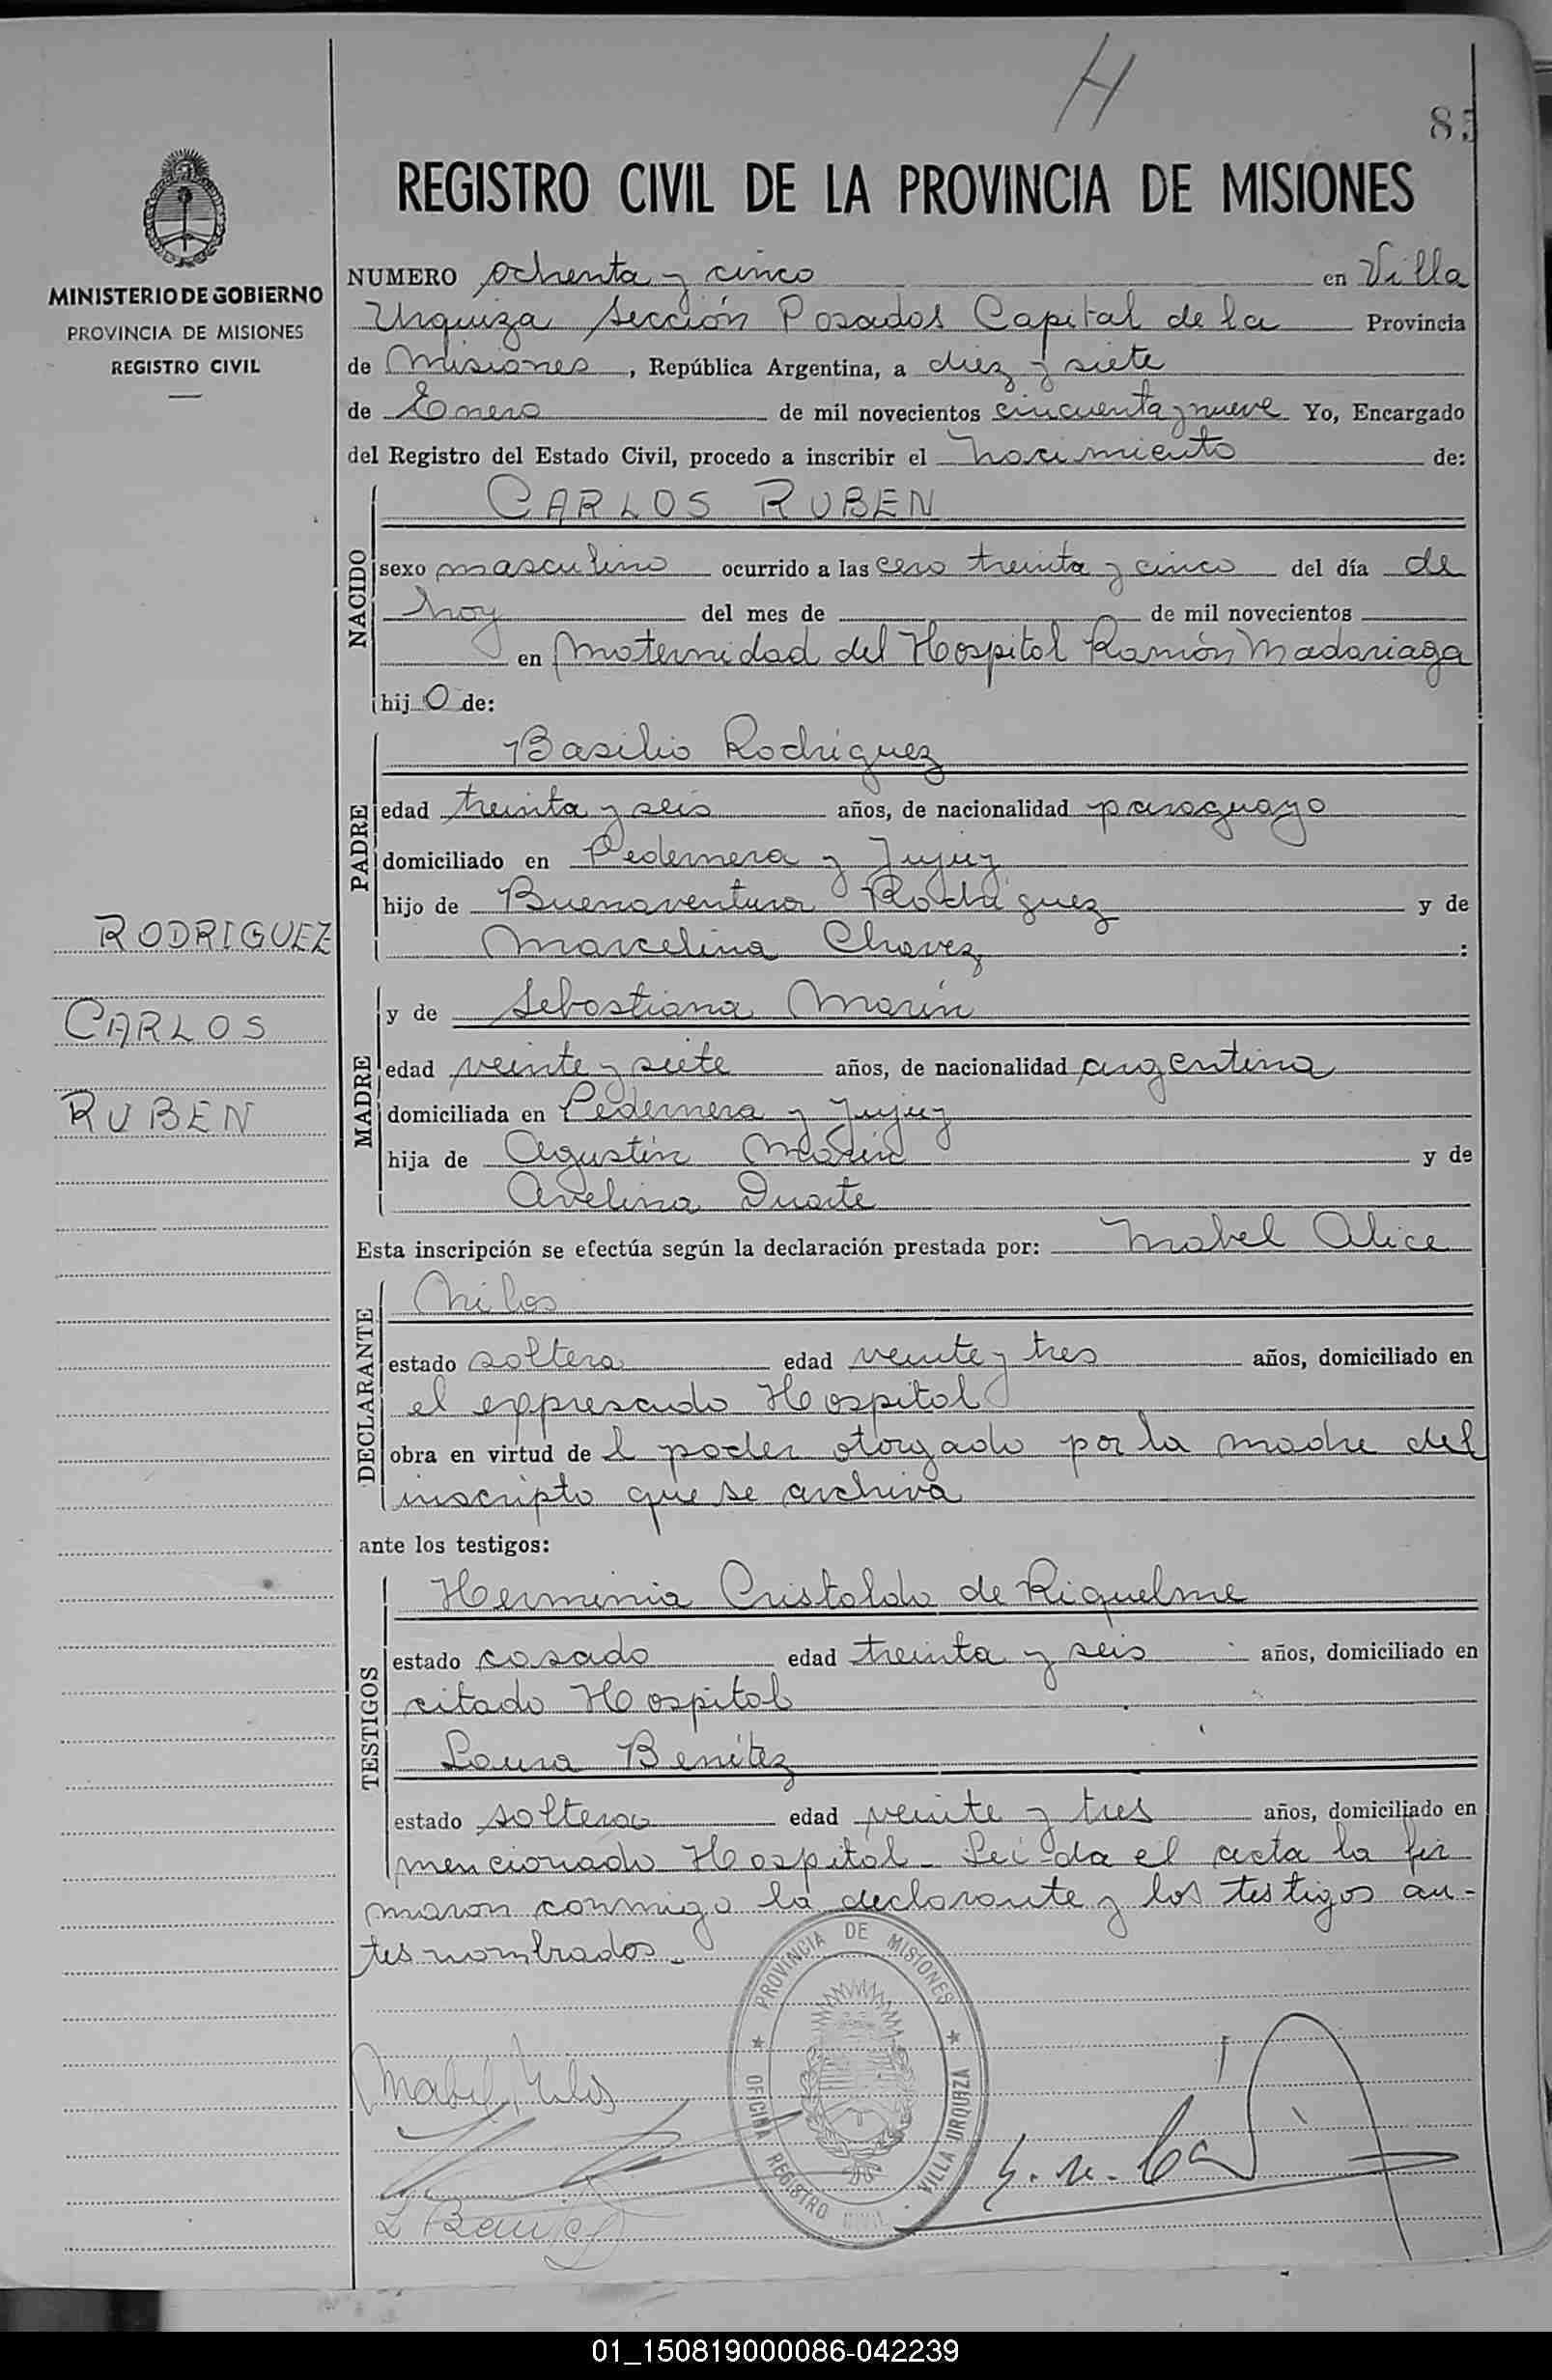 H
85
REGISTRO CIVIL DE LA PROVINCIA DE MISIONES
MINISTERIO DE GOBIERNO
PROVINCIA DE MISIONES
REGISTRO CIVIL
NUMERO ochenta y cinco en Villa
Urquiza Sección Posadas Capital de la Provincia
de Misiones, República Argentina, a diez y siete
de Enero de mil novecientos cincuenta y nueve Yo, Encargado
del Registro del Estado Civil, procedo a inscribir el nacimiento de:
CARLOS RUBEN
NACIDO
sexo masculino ocurrido a las cero treinta y cinco del día de
hoy del mes de de mil novecientos
en Maternidad del Hospital Ramón Madariaga
hijo de:
Basilio Rodriguez
PADRE
edad treinta y seis años, de nacionalidad paraguayo
domiciliado en Pedernera y Jujuy
hijo de Buenaventura Rodriguez y de
Marcelina Chavez :
RODRIGUEZ
CARLOS
RUBEN
y de Sebastiana Marin
MADRE
edad veinte y siete años, de nacionalidad argentina
domiciliada en Pedernera y Jujuy
hija de Agustín Marin y de
Avelina Duarte
Esta inscripción se efectúa según la declaración prestada por: Mabel Alice
Milos
DECLARANTE
estado soltera edad veinte y tres años, domiciliado en
el expresado Hospital
obra en virtud del poder otorgado por la madre del
inscripto que se archiva
ante los testigos:
Herminia Cristaldo de Riquelme
TESTIGOS
estado casada edad treinta y seis años, domiciliado en
citado Hospital
Laura Benítez
estado soltera edad veinte y tres años, domiciliado en
mencionado Hospital - Leída el acta la fir
maron conmigo la declarante y los testigos an-
tes nombrados.-
PROVINCIA DE MISIONES
OFICINA REGISTRO CIVIL VILLA URQUIZA
Mabel Milos
L Benitez
01_150819000086-042239